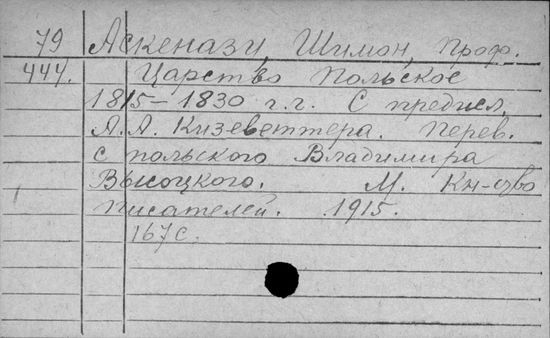 79 Аскенази, Шимон, проф.
444. Царство Польское
1815–1830 г.г. С предисл.
А.А. Кизеветтера. Перев.
с польского Владимира
Высоцкого. М. Кн-ство
писателей. 1915.
167 с.